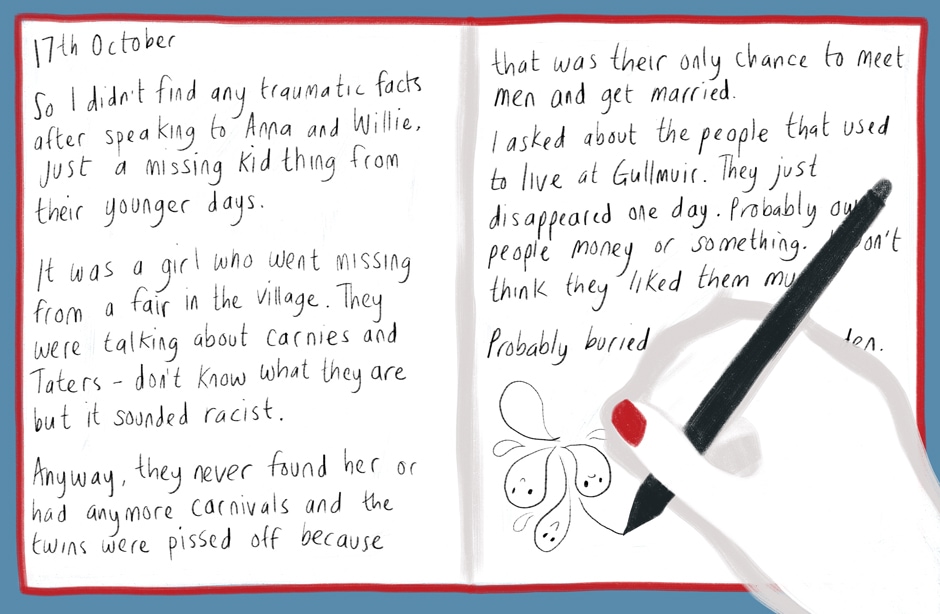 17th October
So I didn't find any traumatic facts
after speaking to Anna and Willie,
Just a missing kid thing from
their younger days.
It was a girl who went missing
from a fair in the village. They
were talking about carnies and
Taters - don't know what they are
but it sounded racist.
Anyway, they never found her or
had anymore carnivals and the
twins were pissed off because
that was their only chance to meet
men and get married.
I asked about the people that used
to live at Gullmuir. They just
disappeared one day. Probably
people money or something.
think they liked them
Probably buried